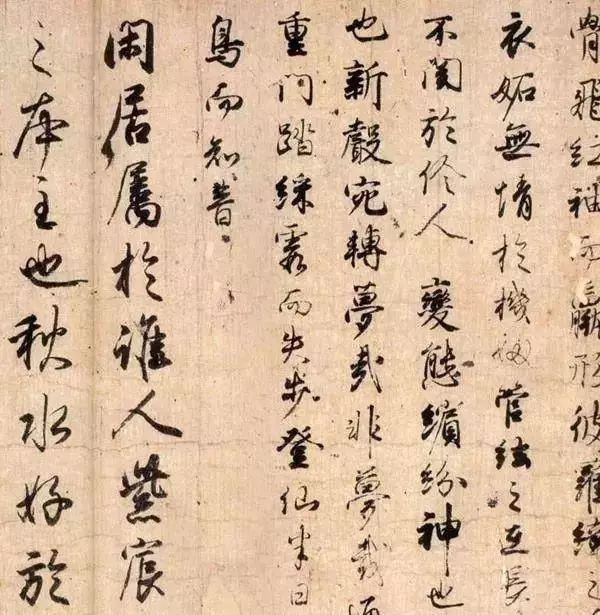 骨飛紅袖而羸形彼羅綺之
衣妬無情於機婦管絃之在長
不闋於伶人 變態繽紛神也
也新聲宛轉夢哉非夢哉
重門踏綵霞而失步登仙半日
鳥而知音
閑居屬於誰人紫宸
之本主也秋水好於